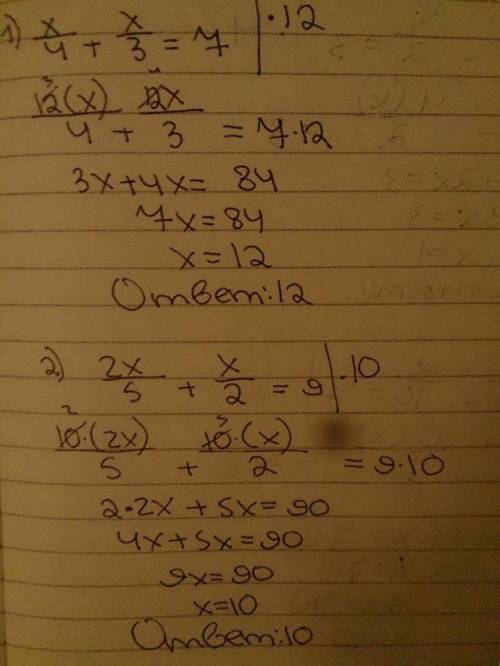 1) x/4 + x/3 = 7 | ·12
12(x)/4 + 12x/3 = 7·12
3x+4x= 84
7x=84
x=12
Ответ:12
2) 2x/5 + x/2 = 9 | ·10
10·(2x)/5 + 10·(x)/2 = 9·10
2·2x + 5x=90
4x+5x=90
9x=90
x=10
Ответ:10